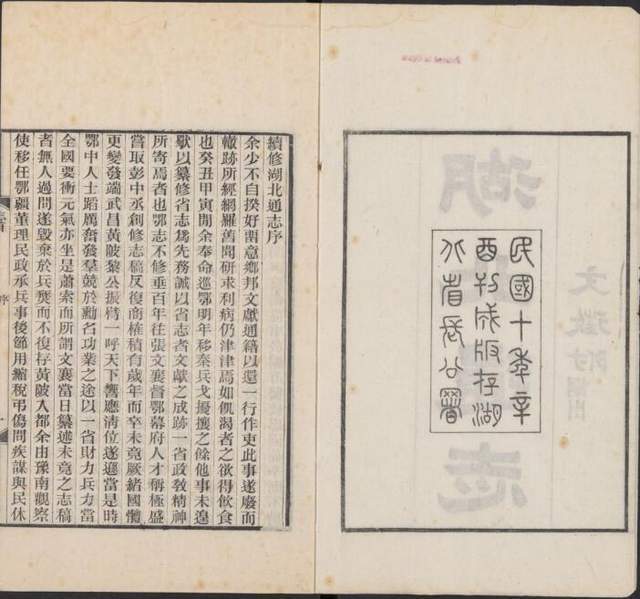 民國十年辛
酉刊成版存湖
北省長公署
續修湖北通志序
余少不自揆好留意鄉邦文獻通籍以還一行作吏此事遂廢而
轍跡所經網羅舊聞研求利病仍津津焉如飢渴者之欲得飲食
也癸丑甲寅間余奉命巡鄂明年移秦兵戈擾攘之餘他事未遑
以纂修省志爲先務誠以省志者文獻之成跡一省政教精神
所寄焉者也鄂志不修垂百年往張文襄督鄂幕府人才稱極盛
嘗取彭中丞創修志稿反復商榷積有歲年而卒未竟厥緒國體
更變發端武昌黃陂黎公振臂一呼天下響應淸位遂遜當是時
鄂中人士蹈厲奮發羣競於勳名功業之途以一省財力兵力當
全國要衝元氣亦坐是蕭索而所謂文襄當日纂述未竟之志稿
者無人過問遂毀棄於兵燹而不復存黃陂入都余由豫南觀察
使移任鄂疆董理民政承兵事後節用縮稅弔傷問疾謀與民休
序